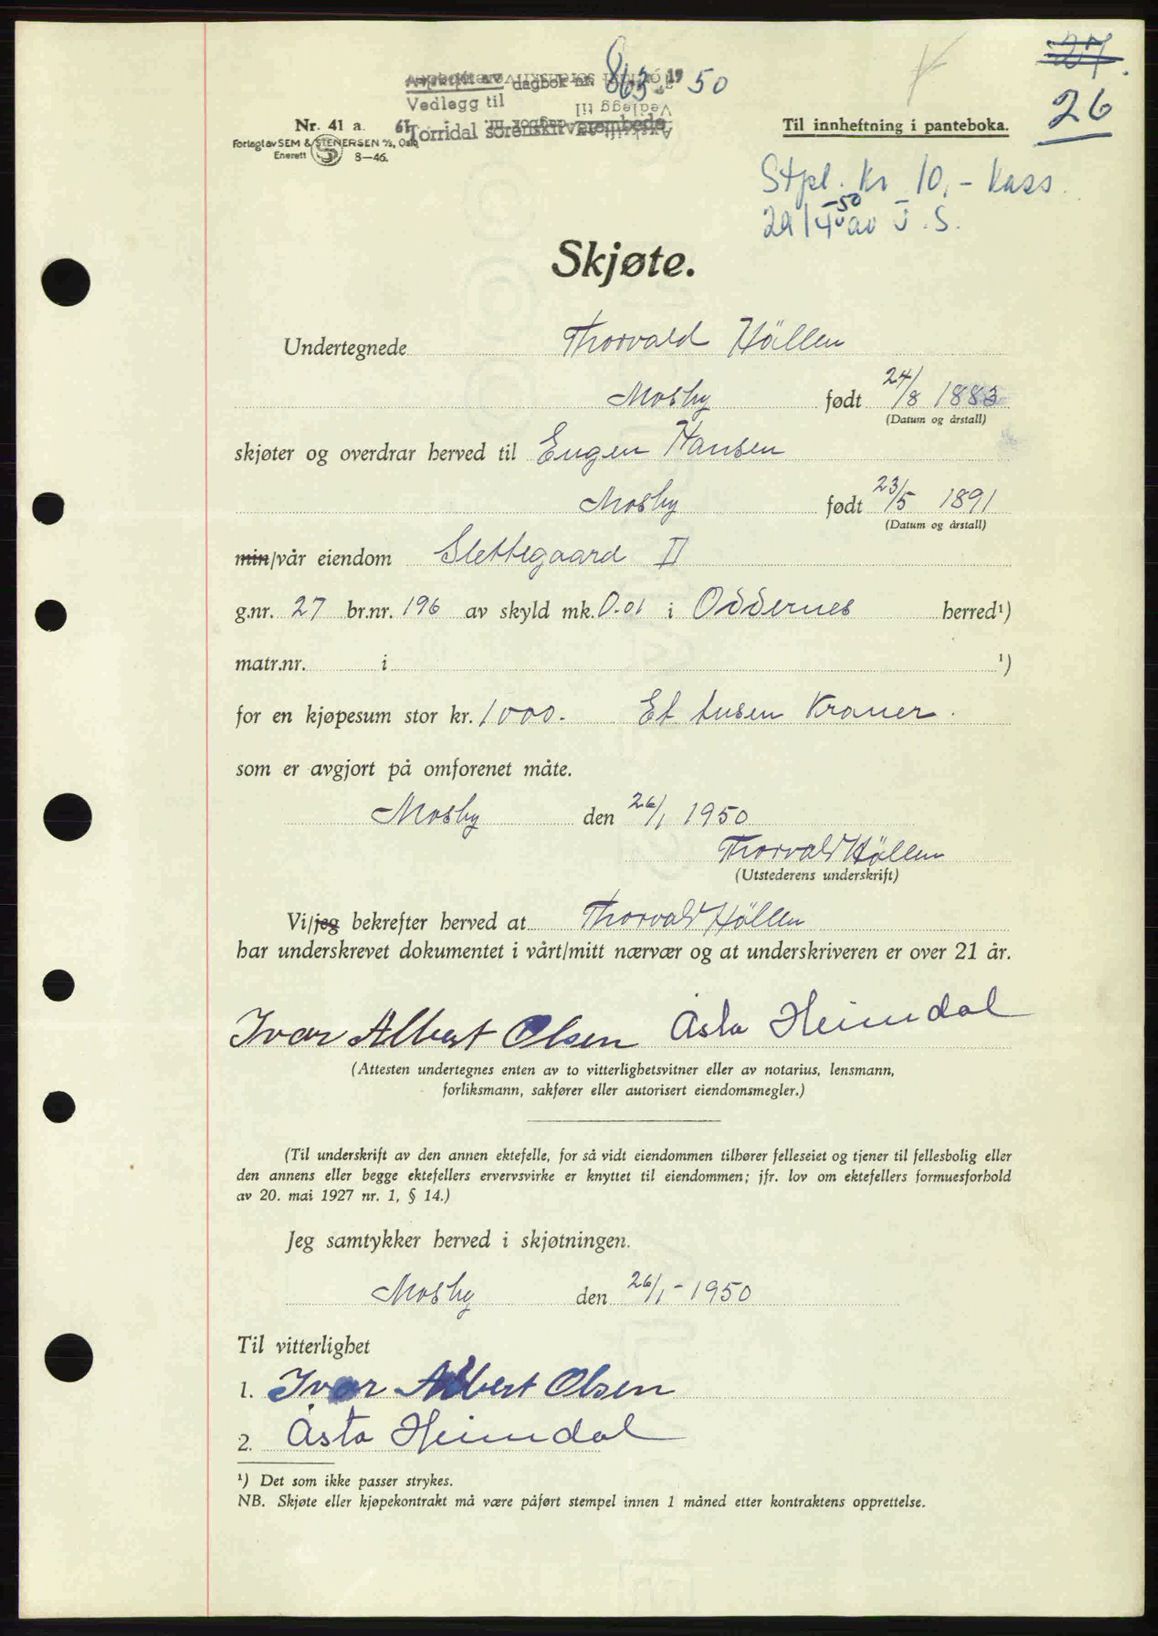 27.
26
dagbok nr. 863 1950
Vedlegg til
Torridal sorenskriverembede
Nr. 41 a.
Til innheftning i panteboka.
Forlagt av SEM & STENERSEN A/S, Oslo
Enerett S 8-46.
Stpl. kr 10,- kass.
29/4-50 av J.S.
Skjøte.
Undertegnede Thorvald Hällen
Mosby født 24/8 1883
(Datum og årstall)
skjøter og overdrar herved til Eugen Hansen
Mosby født 23/5 1891
(Datum og årstall)
min/vår eiendom Slettegaard II
g.nr. 27 br.nr. 196 av skyld mk. 0.01 i Oddernes herred¹)
matr.nr. i ¹)
for en kjøpesum stor kr. 1000. Et tusen Kroner.
som er avgjort på omforenet måte.
Mosby den 26/1 1950
Thorvald Hällen
(Utstederens underskrift)
Vi/jeg bekrefter herved at Thorvald Hällen
har underskrevet dokumentet i vårt/mitt nærvær og at underskriveren er over 21 år.
Ivar Albert Olsen Asta Heimdal
(Attesten undertegnes enten av to vitterlighetsvitner eller av notarius, lensmann,
forliksmann, sakfører eller autorisert eiendomsmegler.)
(Til underskrift av den annen ektefelle, for så vidt eiendommen tilhører felleseiet og tjener til fellesbolig eller
den annens eller begge ektefellers ervervsvirke er knyttet til eiendommen; jfr. lov om ektefellers formuesforhold
av 20. mai 1927 nr. 1, § 14.)
Jeg samtykker herved i skjøtningen.
Mosby den 26/1-1950
Til vitterlighet
1. Ivar Albert Olsen
2. Asta Heimdal
¹) Det som ikke passer strykes.
NB. Skjøte eller kjøpekontrakt må være påført stempel innen 1 måned etter kontraktens opprettelse.